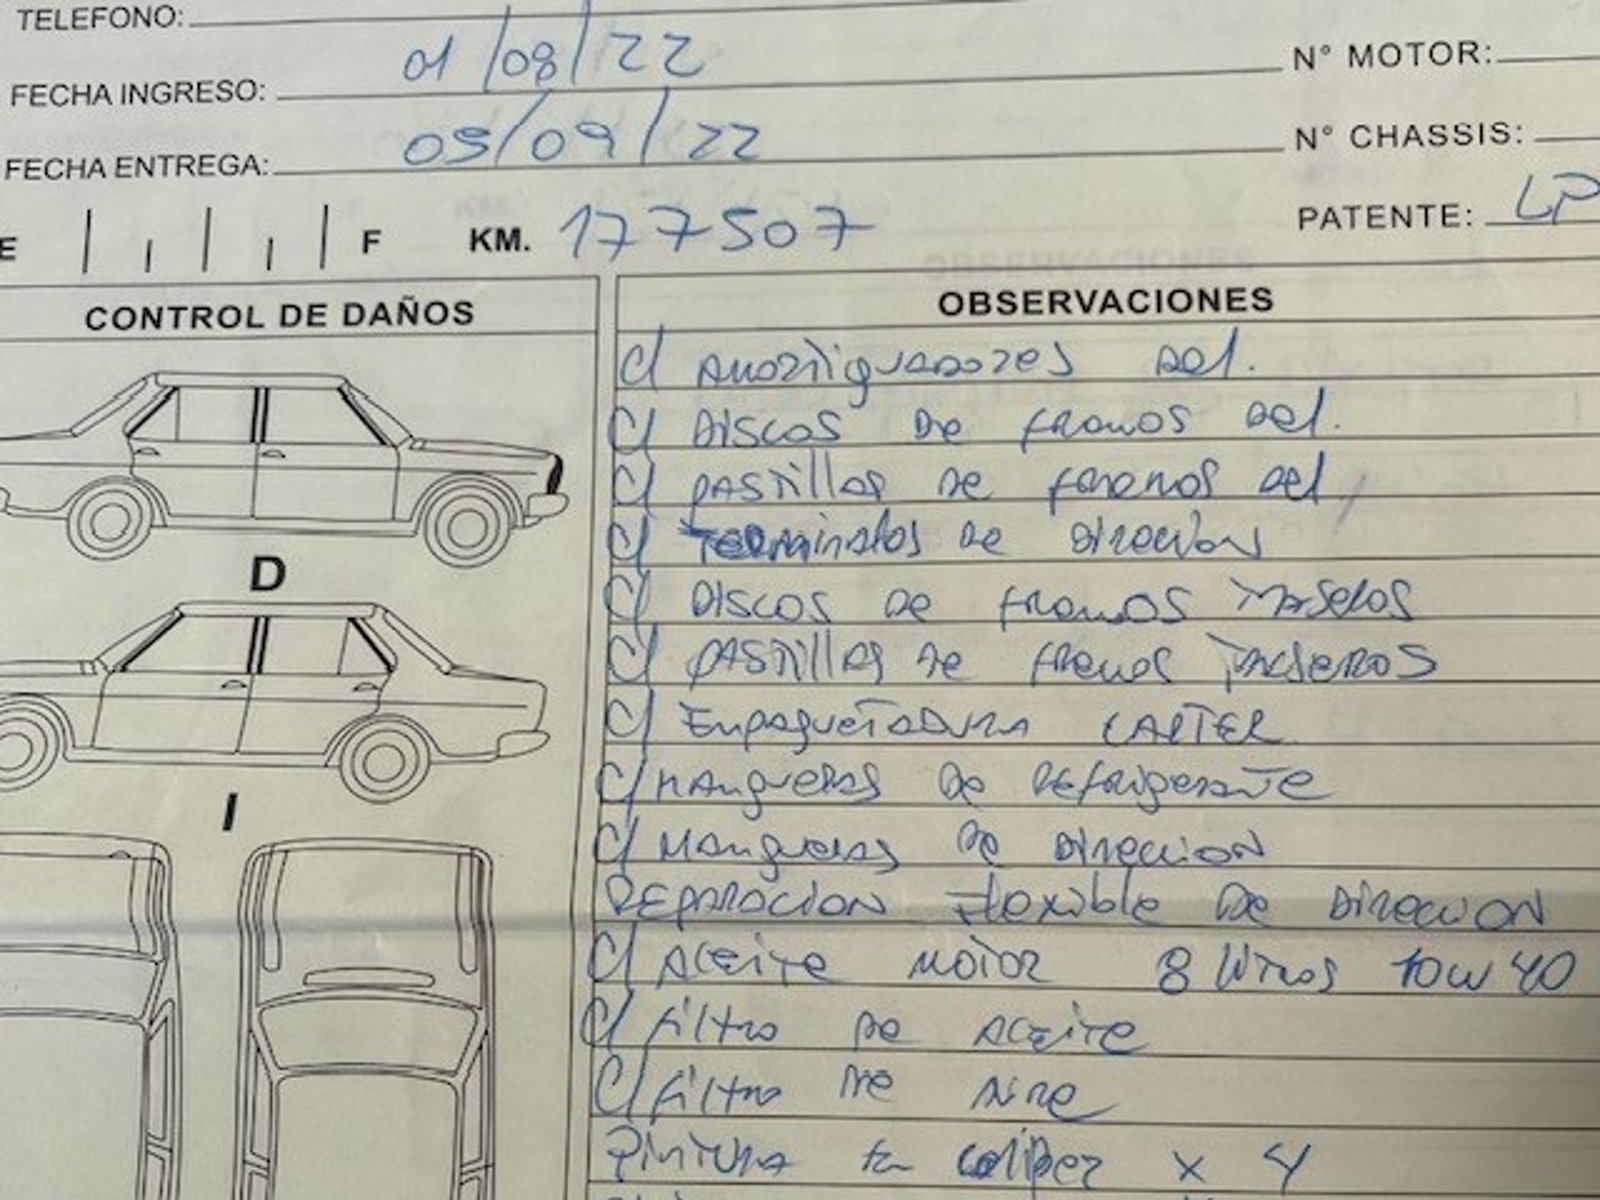 TELEFONO:
FECHA INGRESO: 01/08/22
N° MOTOR:
FECHA ENTREGA: 05/09/22
N° CHASSIS:
E F KM. 177507
PATENTE: LP
CONTROL DE DAÑOS
OBSERVACIONES
c/ Amortiguadores del.
c/ Discos de frenos del.
c/ pastillas de frenos del
c/ Terminales de direccion
c/ Discos de frenos traseros
c/ pastillas de frenos traseros
c/ Empaquetadura CARTER
c/ Mangueras de Refrigerante
c/ Mangueras de direccion
Reparacion Flexible de direccion
c/ Aceite motor 8 litros 10w40
c/ filtro de aceite
c/ filtro de aire
Pintura en caliper x 4
D
I